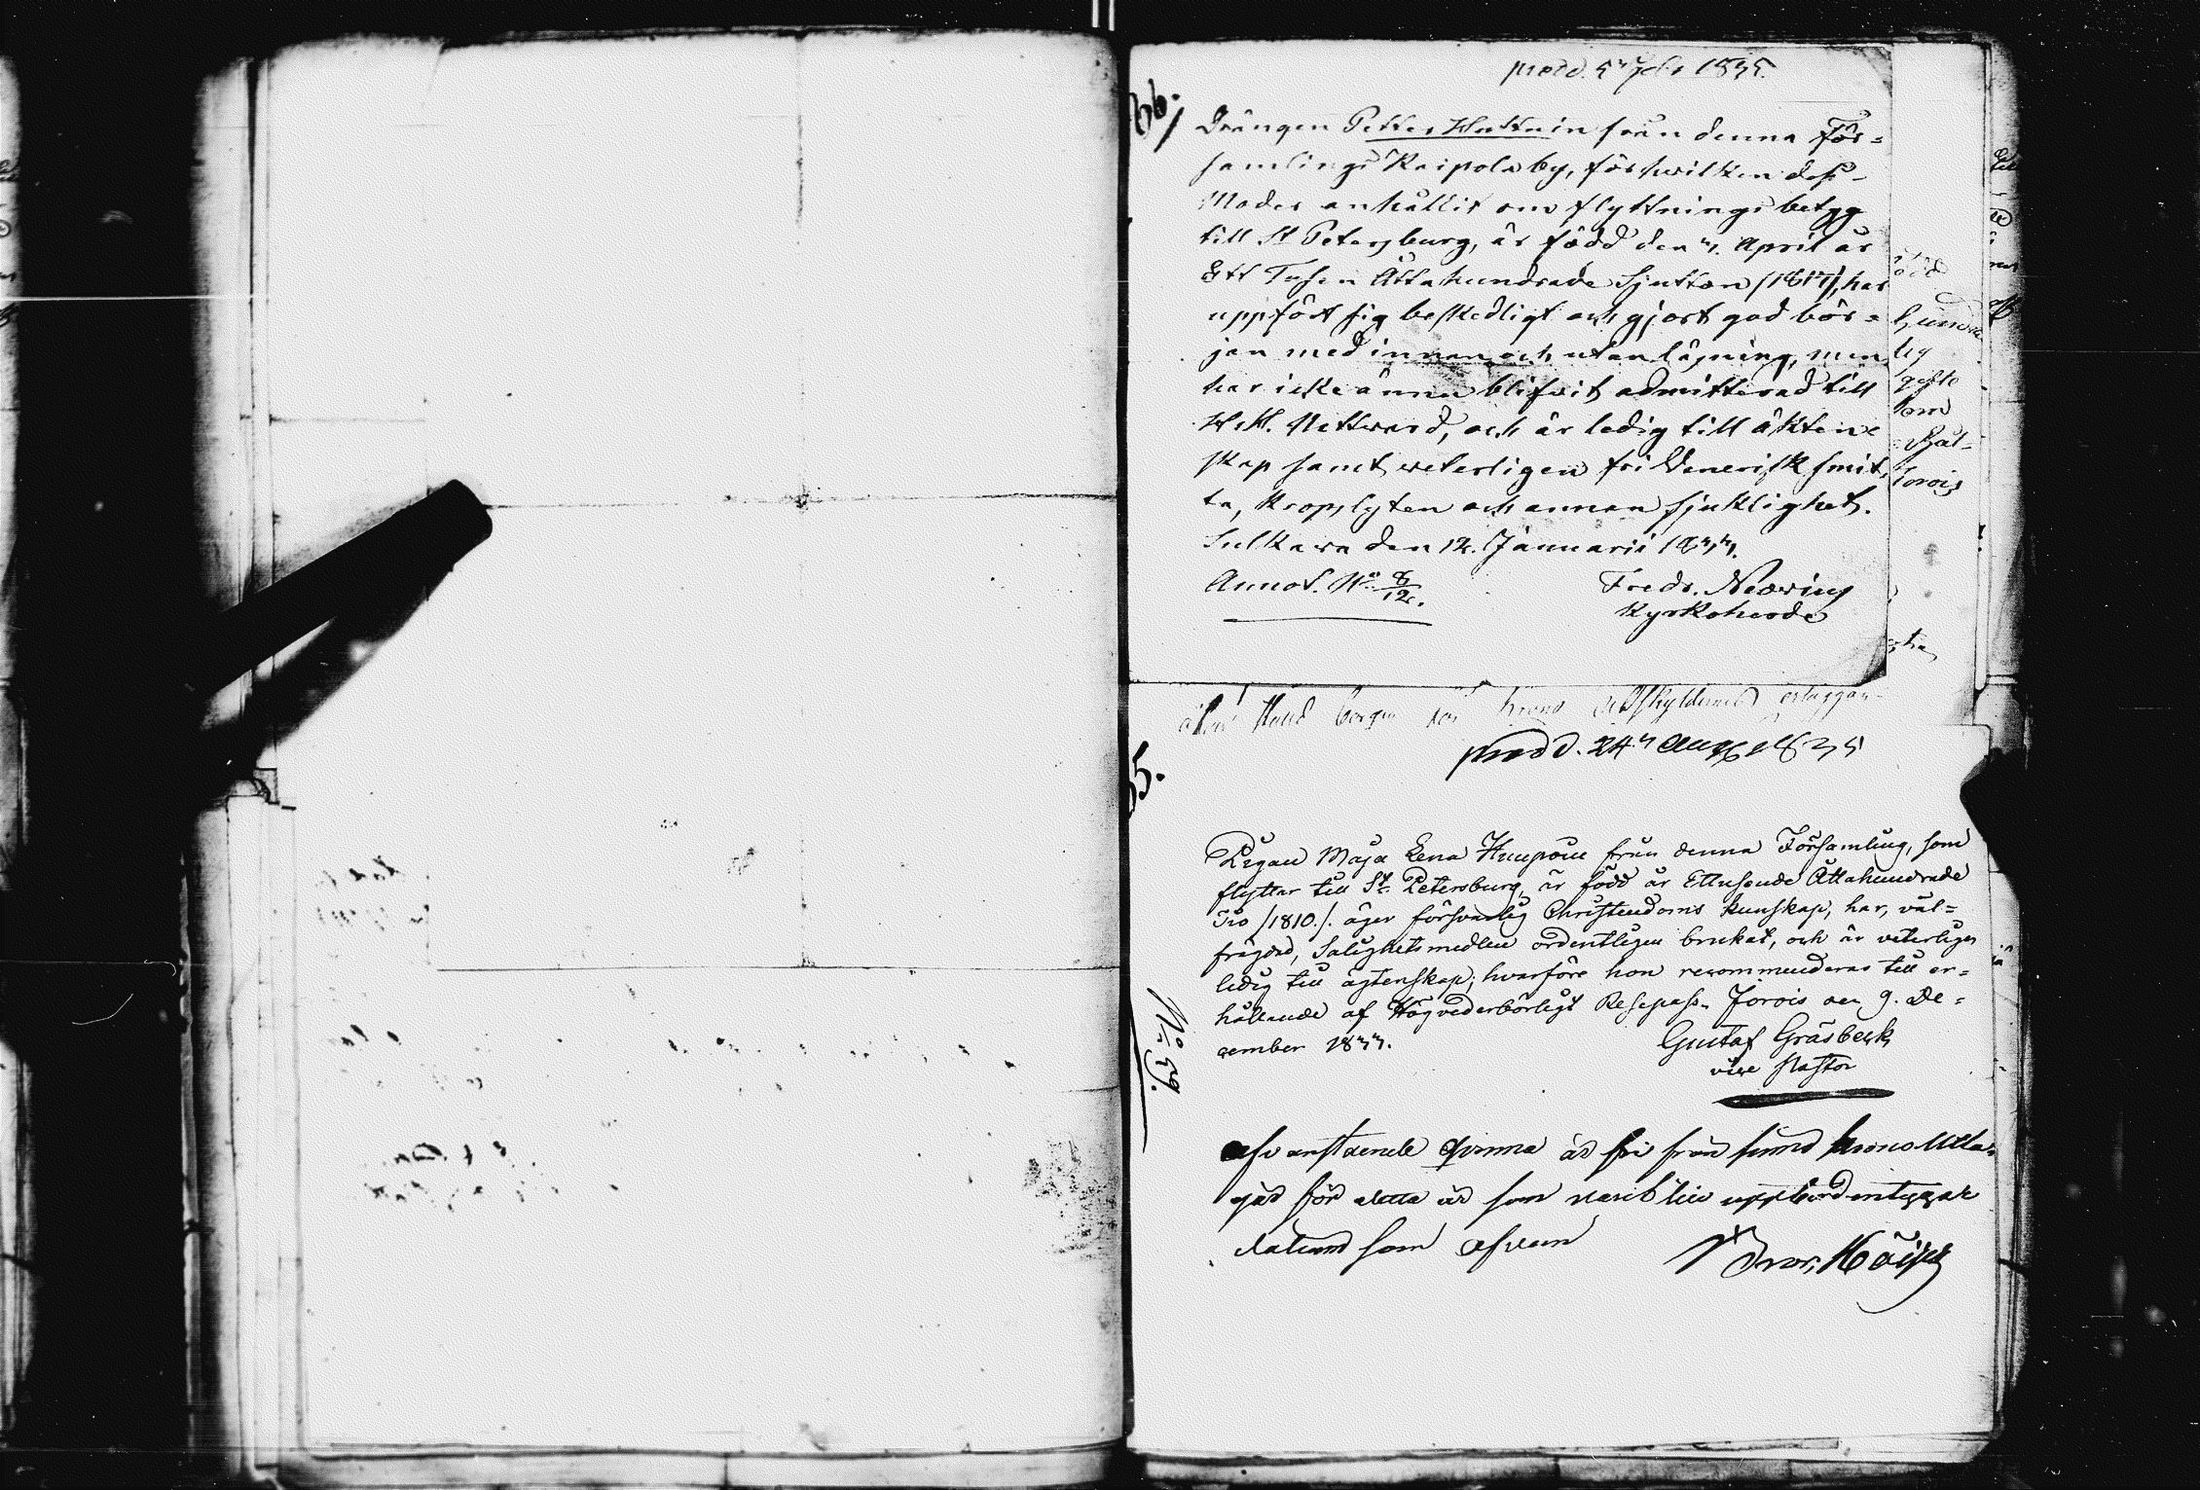 prodd. 5 Feb. 1835.
36,
Drängen Petter Huttuin från denna För-
samlings Kaipola by, för hwilken dess
Moder anhållit om flyttnings betyg
till St Petersburg, är född den 7. April år
Ett Tusen Åtta hundrade Sjutton /1817/, har
uppfört sig beskedligt och gjort god bör-
jan med innan och utan läsning, men
har icke ännu blifvit admitterad till
H. H. Nattward, och är ledig till äkten-
skap samt veterligen fri Venerisk smit-
ta, kropslyten och annan sjuklighet.
Sulkava den 12. Januarii 1833.
Annot. No 8/12.
Fredr. Neovius
Kyrkoherde
prodd. 24 Aug 1835
35.
Pigan Maja Lena Huupoin från denna Församling, som
flyttar till St Petersburg, är född år Ettusende Åttahundrade
Tio /1810./. äger försvarlig Christendoms kunskap, har, väl-
frägdad, Salighetsmedlen ordentligen brukat, och är veterligen
ledig till ägtenskap; hvarföre hon recommenderas till er-
hållande af Högvederbörligt Resepass. Jorois den 9. De-
cember 1833.
Gustaf Gråsbeck
vice Pastor
No 59.
ofvanstående qvinna är fri från sinna krono Utla-
gor för detta år som verkstäld uppbörd intygar
datum som ofvan